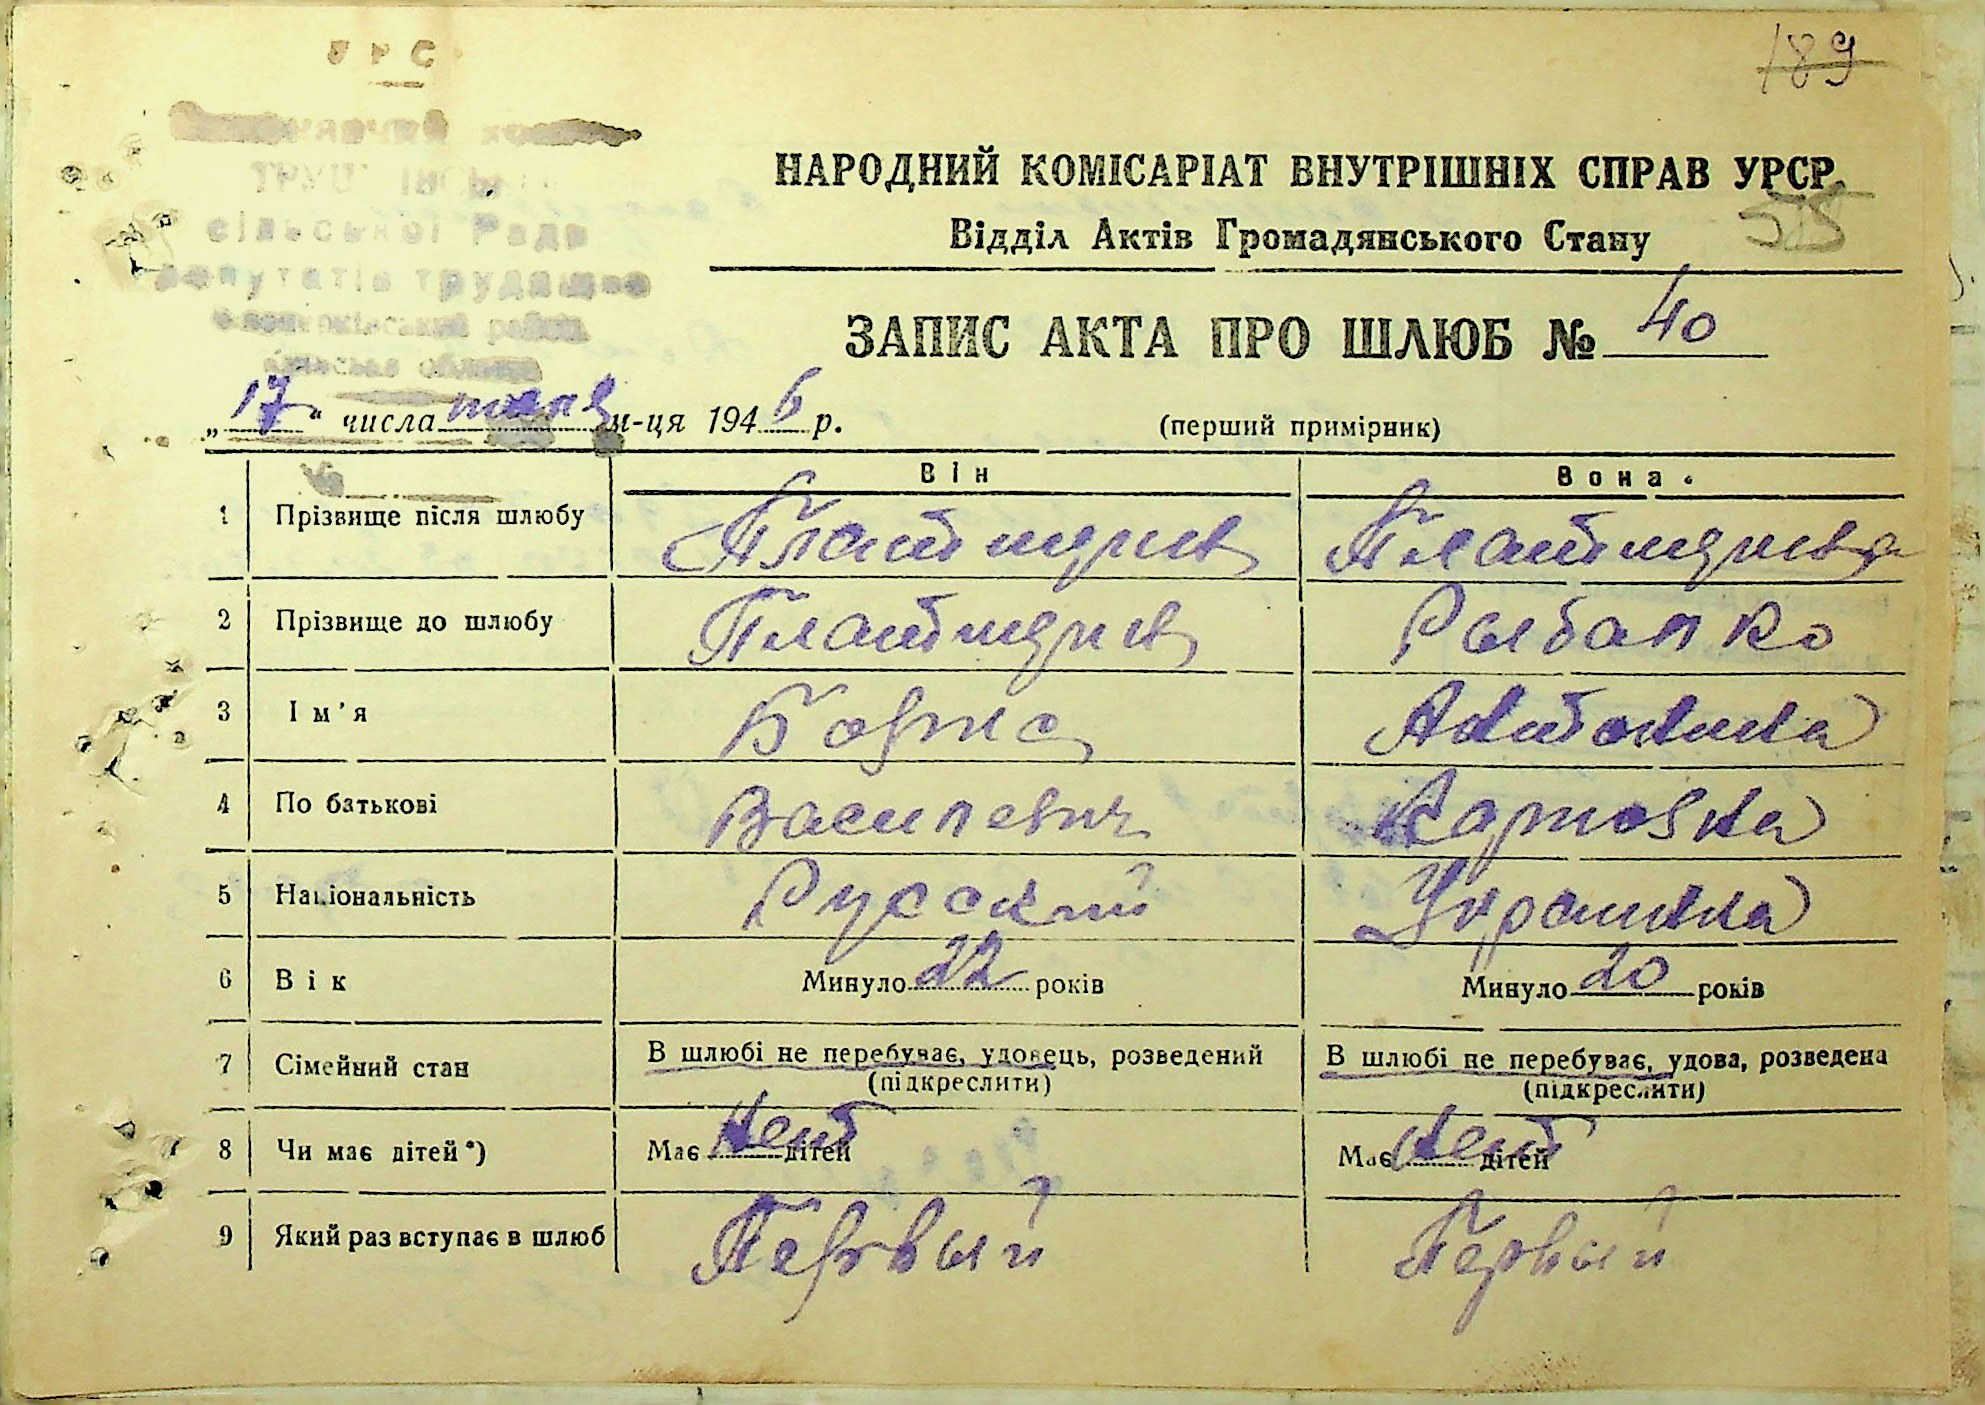 189
НАРОДНИЙ КОМІСАРІАТ ВНУТРІШНІХ СПРАВ УРСР
Відділ Актів Громадянського Стану
сільської Ради
депутатів трудящих
район
область
ЗАПИС АКТА ПРО ШЛЮБ № 40
„17" числа м-ця 1946 р.
(перший примірник)
Він Вона
1 Прізвище після шлюбу
2 Прізвище до шлюбу Рыбалко
3 Ім'я Борис Антонина
4 По батькові Васильевич Карповна
5 Національність Русский Украинка
6 Вік Минуло 22 років Минуло 20 років
7 Сімейний стан В шлюбі не перебуває, удовець, розведений В шлюбі не перебуває, удова, розведена
(підкреслити) (підкреслити)
8 Чи має дітей*) Має Нет дітей Має Нет дітей
9 Який раз вступає в шлюб Первый Первый